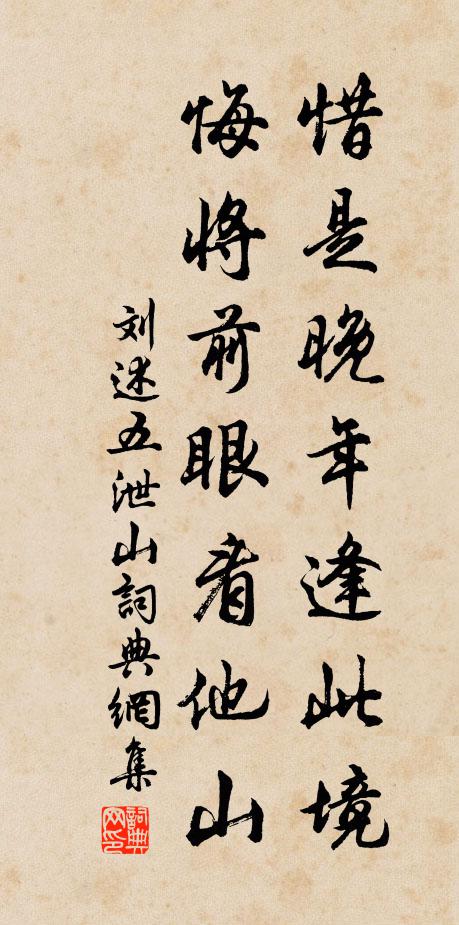 惜是晚年逢此境
悔将前眼看他山
刘述五泄山詞典網集
詞典网印